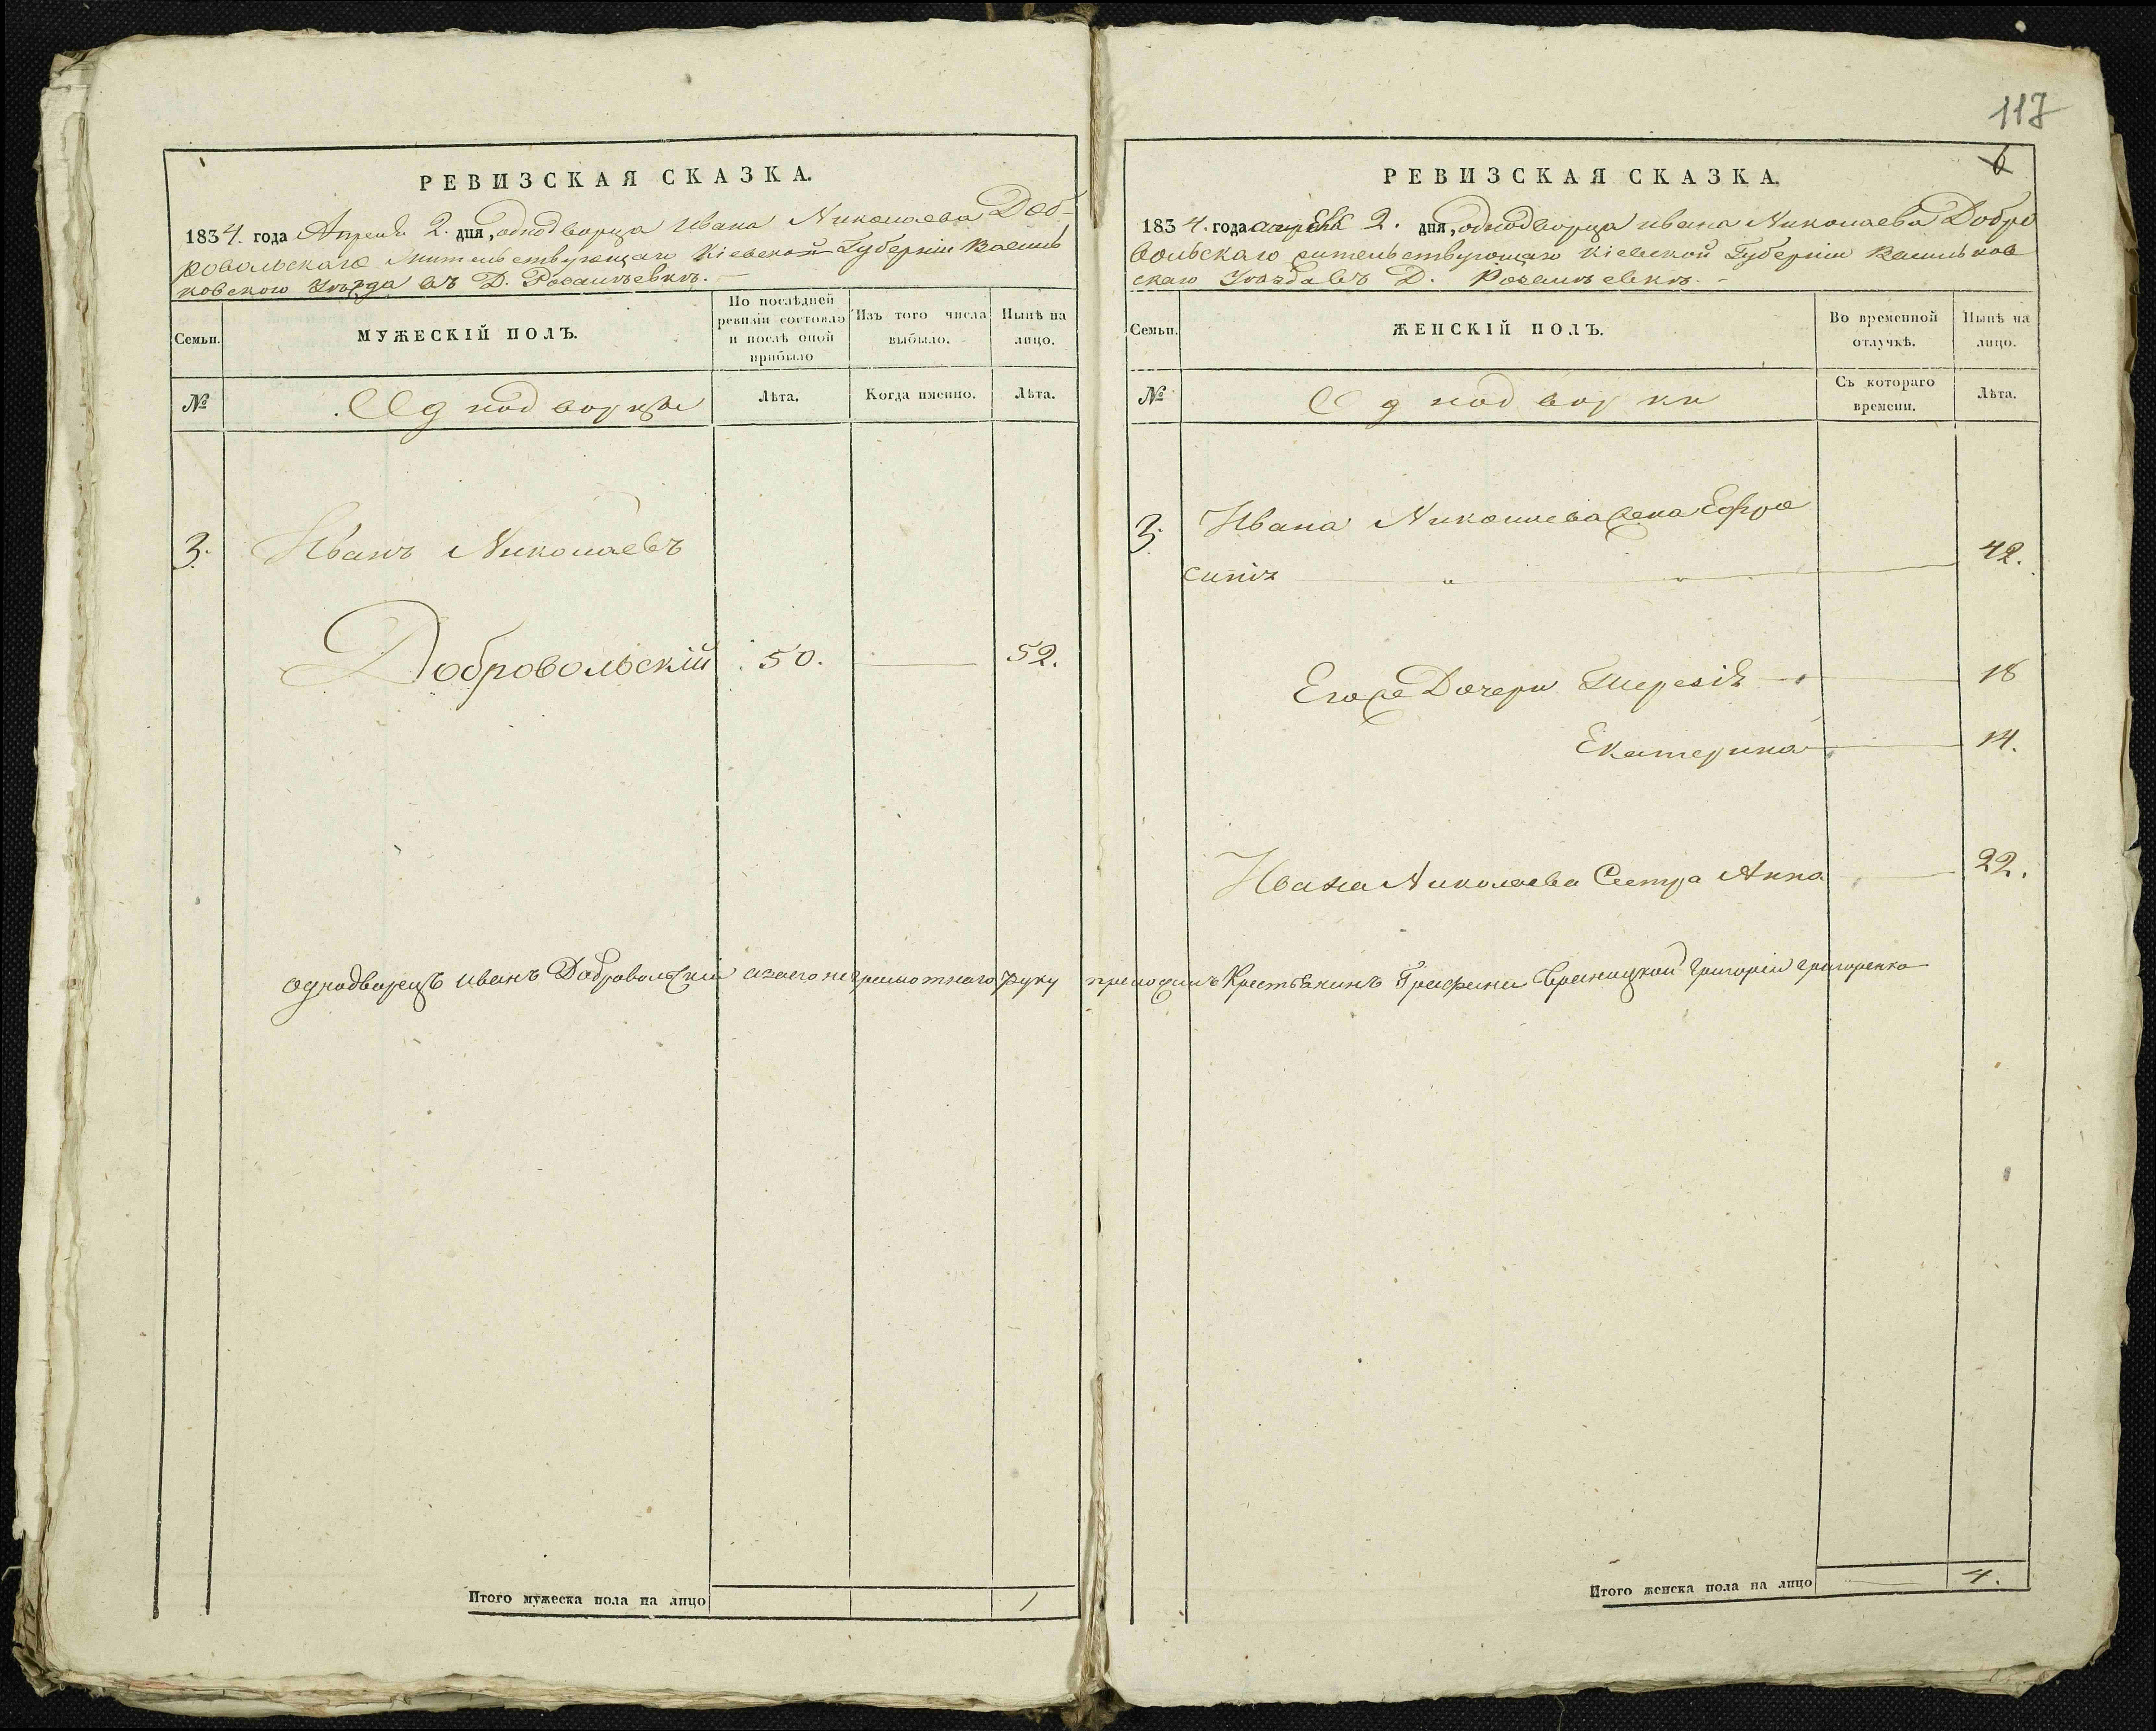 РЕВИЗСКАЯ СКАЗКА.
1834. года Апреля 2. дня, однодворца Ивана Николаева Доб-
ровольскаго Жительствующаго Кіевской Губерніи Василь
ковского Уѣзда въ Д.
Семьи.
МУЖЕСКІЙ ПОЛЪ.
По послѣдней ревизіи состояло и послѣ оной прибыло
Изъ того числа выбыло.
Нынѣ на лицо.
№
Однодворцы
Лѣта.
Когда именно.
Лѣта.
3. Иванъ Николаевъ
Добровольскій 50. 52.
Итого мужеска пола на лицо 1
117
6
РЕВИЗСКАЯ СКАЗКА.
1834. года апреля 2. дня, однодворца ивана Николаева Добро
вольскаго жительствующаго Кіевской Губерніи Васильков
скаго Уезда въ Д.
Семьи.
ЖЕНСКІЙ ПОЛЪ.
Во временной отлучкѣ.
Нынѣ на лицо.
№
Однодворки
Съ котораго времени.
Лѣта.
3. Ивана Николаева жена Ефро
синія 42.
Его же Дочери Терезія 18
Екатерина 14.
Ивана Николаева Сестра Анна 22.
однодворецъ иванъ Добровольский азаего неграмотнаго руку приложилъ Крестьянинъ Графини Браницкой Григорій Григоренко
Итого женска пола на лицо 4.